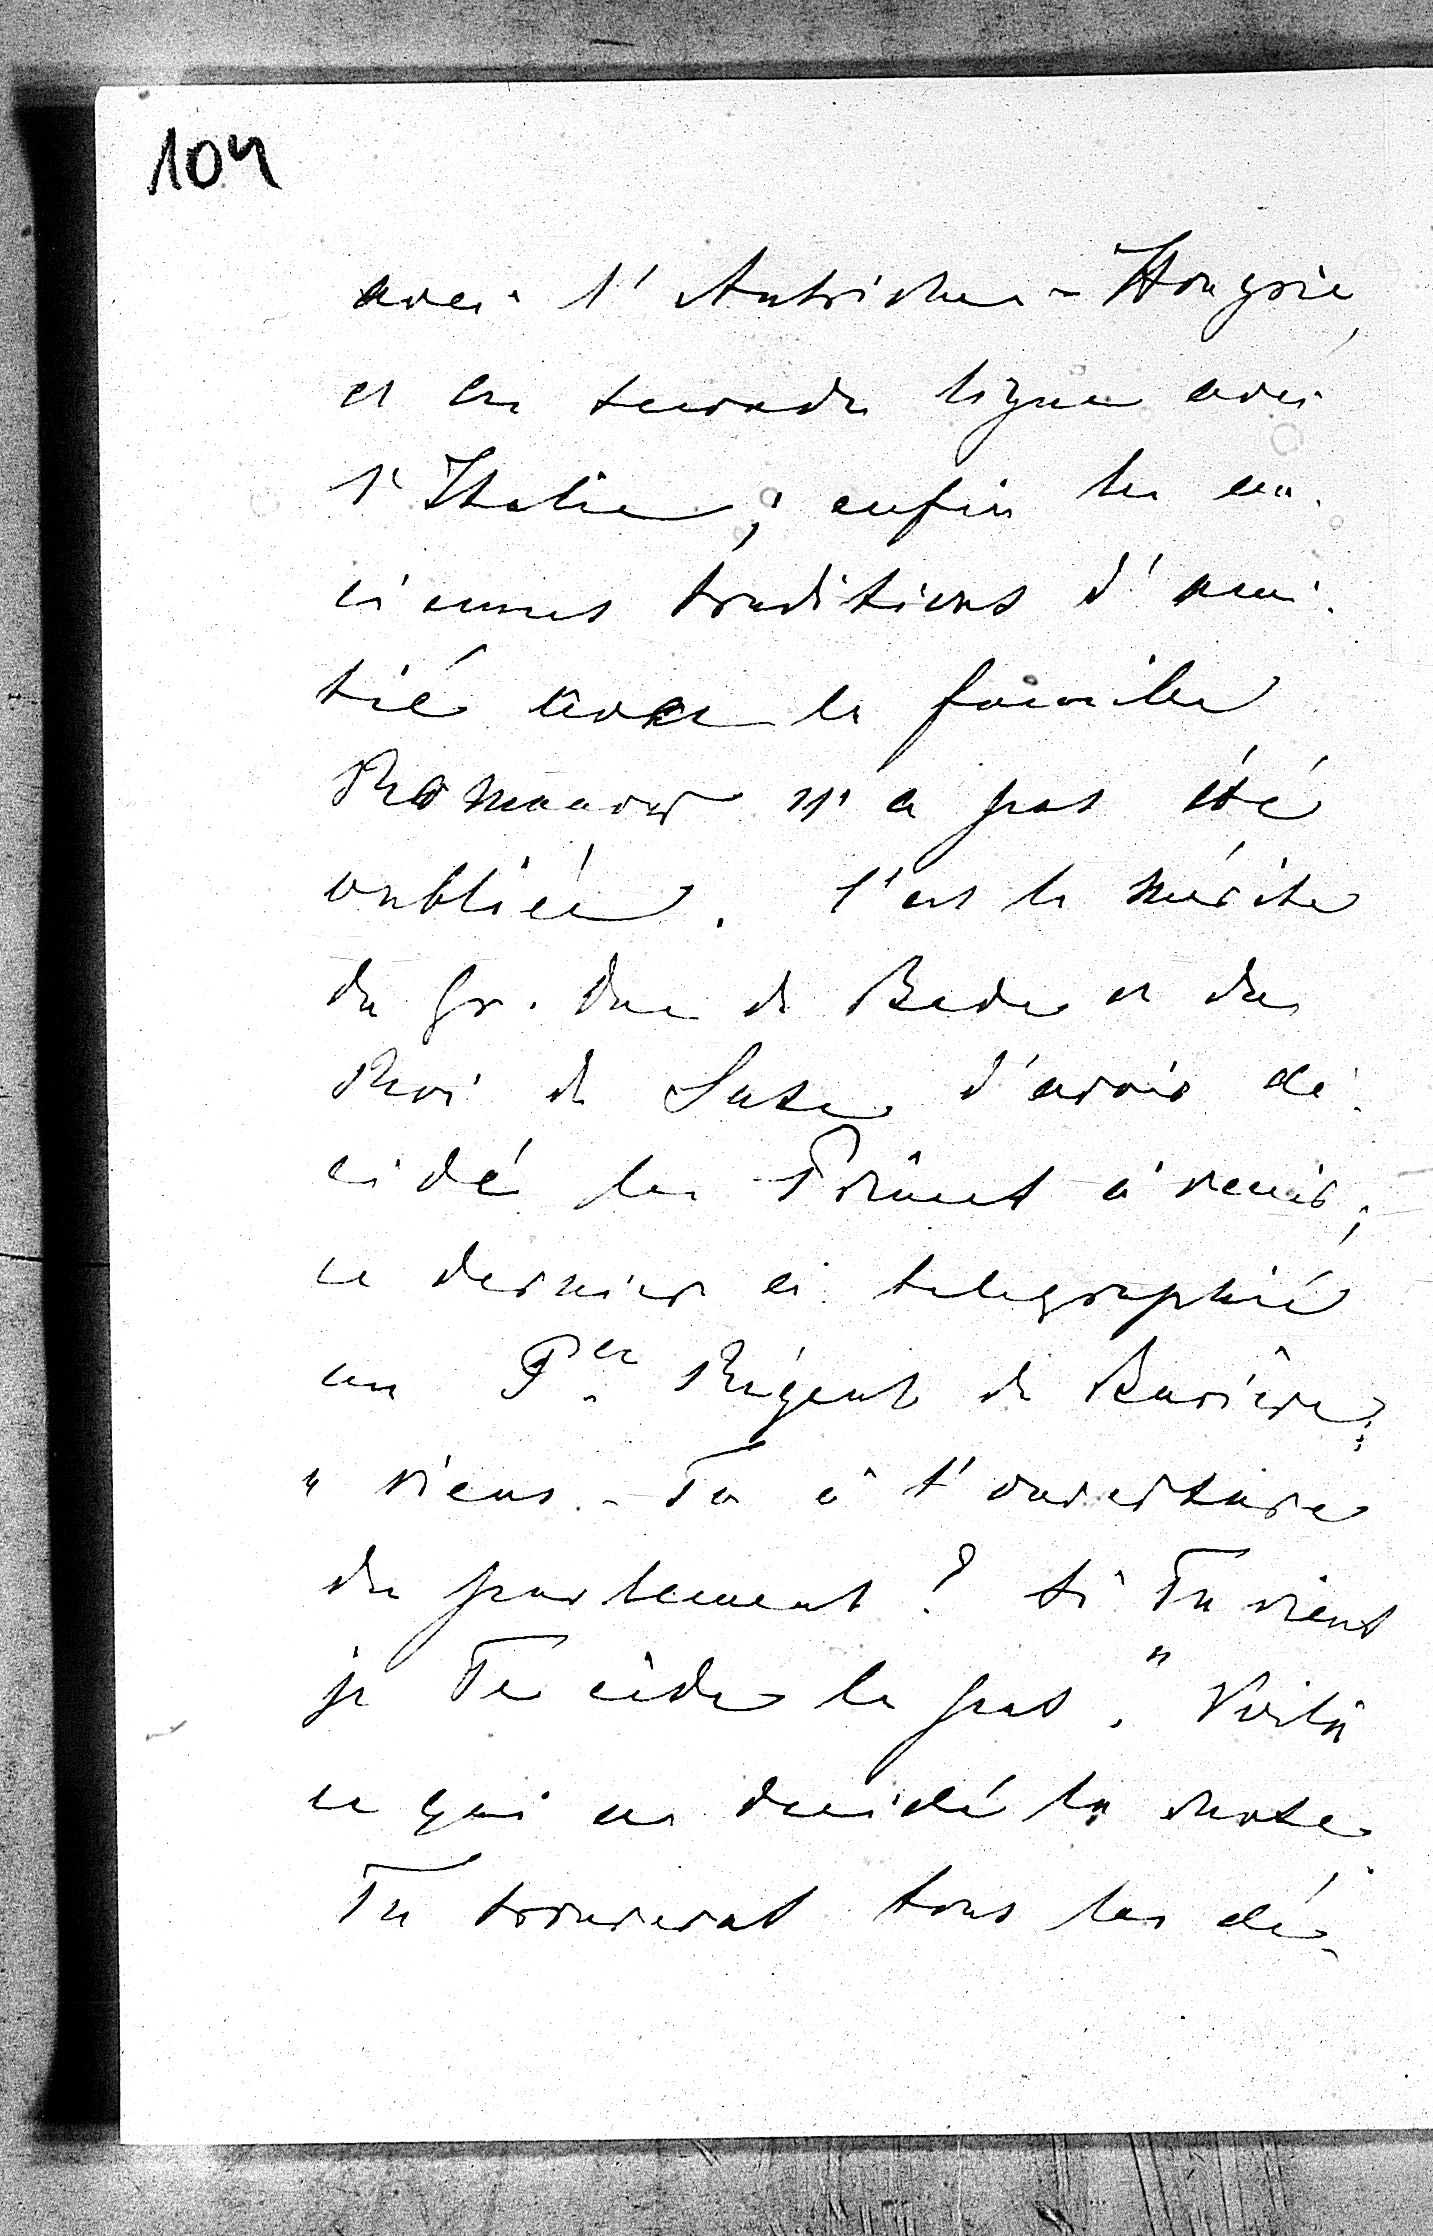 104
avec l'Autriche-Hongrie,
et en seconde ligne avec
l'Italie; enfin les an-
ciennes traditions d'ami-
tié avec la famille
Romanow n'a pas été
oubliée. C'est le mérite
du Gr. Duc de Bade et du
Roi de Saxe d'avoir dé-
cidé les Princes à venir;
ce dernier a telegraphié
au P.ce Régent de Bavière:
"viens-Tu à l'ouverture
du parlement? si Tu viens
je Te cède le pas." Voilà
ce qui a decidé la chose.
Tu trouveras tous les dé-